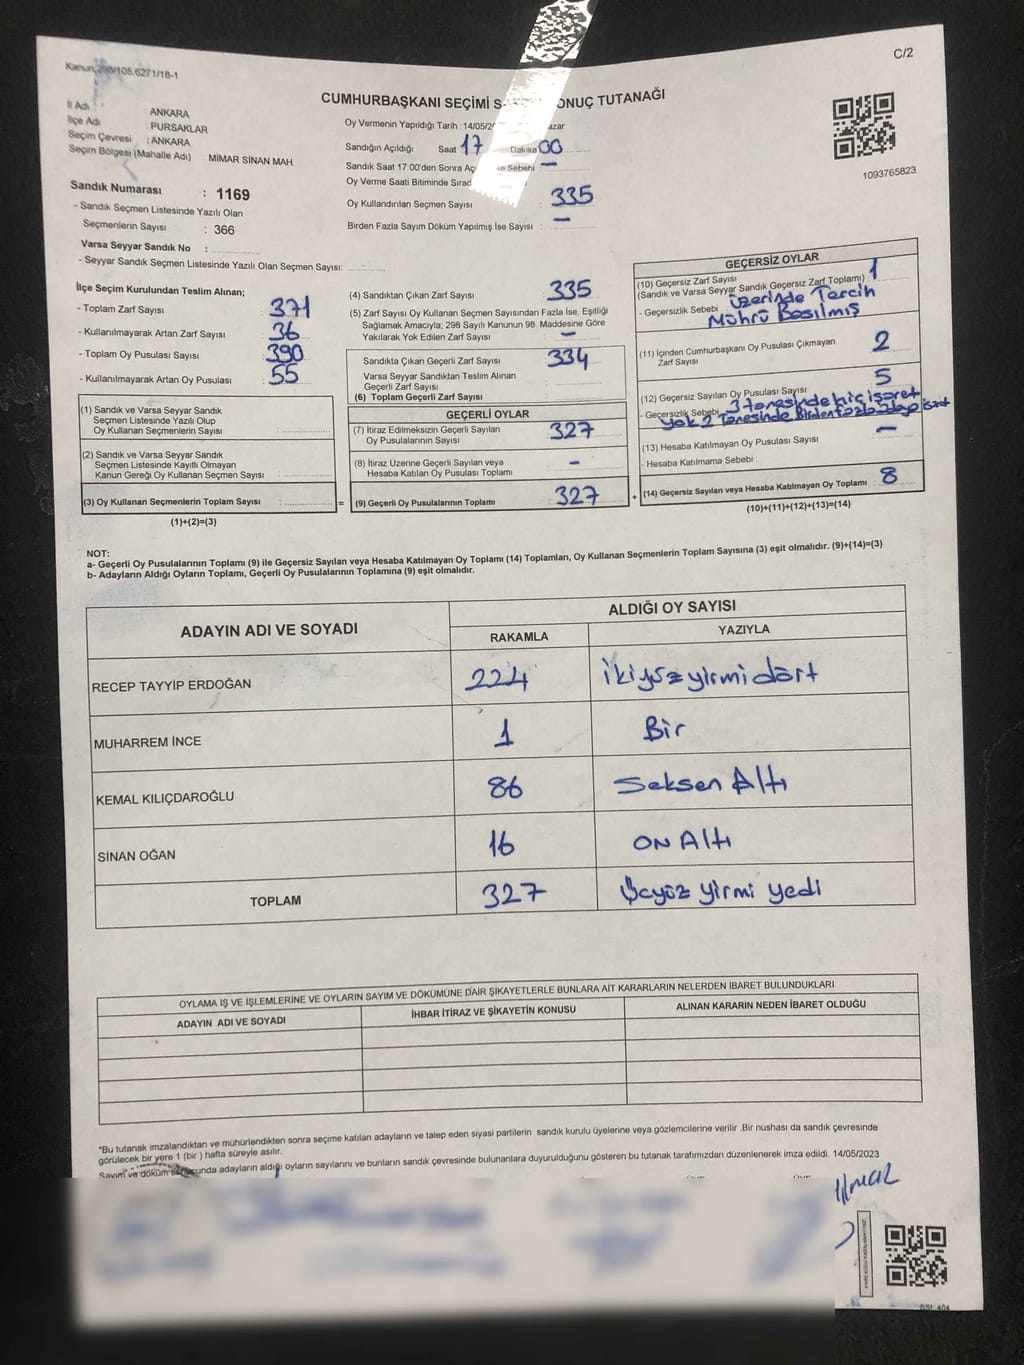 C/2
Kanun 298/105.6271/18-1
CUMHURBAŞKANI SEÇİMİ S ONUÇ TUTANAĞI
İl Adı ANKARA
İlçe Adı : PURSAKLAR
Seçim Çevresi : ANKARA
Seçim Bölgesi (Mahalle Adı) MİMAR SİNAN MAH.
Sandık Numarası : 1169
- Sandık Seçmen Listesinde Yazılı Olan
Seçmenlerin Sayısı : 366
Varsa Seyyar Sandık No :
- Seyyar Sandık Seçmen Listesinde Yazılı Olan Seçmen Sayısı:
Oy Vermenin Yapıldığı Tarih :14/05/2 azar
Sandığın Açıldığı Saat 17 Dakika 00
Sandık Saat 17:00'den Sonra Aç ise Sebebi –
Oy Verme Saati Bitiminde Sırad
Oy Kullandırılan Seçmen Sayısı : 335
Birden Fazla Sayım Döküm Yapılmış İse Sayısı : –
1093765823
İlçe Seçim Kurulundan Teslim Alınan;
- Toplam Zarf Sayısı : 371
- Kullanılmayarak Artan Zarf Sayısı : 36
- Toplam Oy Pusulası Sayısı : 390
- Kullanılmayarak Artan Oy Pusulası : 55
(1) Sandık ve Varsa Seyyar Sandık
Seçmen Listesinde Yazılı Olup
Oy Kullanan Seçmenlerin Sayısı :
(2) Sandık ve Varsa Seyyar Sandık
Seçmen Listesinde Kayıtlı Olmayan
Kanun Gereği Oy Kullanan Seçmen Sayısı :
(3) Oy Kullanan Seçmenlerin Toplam Sayısı :
(1)+(2)=(3)
=
(4) Sandıktan Çıkan Zarf Sayısı : 335
(5) Zarf Sayısı Oy Kullanan Seçmen Sayısından Fazla İse, Eşitliği
Sağlamak Amacıyla; 298 Sayılı Kanunun 98. Maddesine Göre
Yakılarak Yok Edilen Zarf Sayısı : –
Sandıkta Çıkan Geçerli Zarf Sayısı : 334
Varsa Seyyar Sandıktan Teslim Alınan
Geçerli Zarf Sayısı :
(6) Toplam Geçerli Zarf Sayısı :
GEÇERLİ OYLAR
(7) İtiraz Edilmeksizin Geçerli Sayılan
Oy Pusulalarının Sayısı : 327
(8) İtiraz Üzerine Geçerli Sayılan veya
Hesaba Katılan Oy Pusulası Toplamı : –
(9) Geçerli Oy Pusulalarının Toplamı : 327
+
GEÇERSİZ OYLAR
(10) Geçersiz Zarf Sayısı
(Sandık ve Varsa Seyyar Sandık Geçersiz Zarf Toplamı) : 1
- Geçersizlik Sebebi : Üzerinde Tercih
Mührü Basılmış
(11) İçinden Cumhurbaşkanı Oy Pusulası Çıkmayan
Zarf Sayısı : 2
(12) Geçersiz Sayılan Oy Pusulası Sayısı : 5
- Geçersizlik Sebebi : 3 tanesinde hiç işaret
yok 2 Tanesinde Birden fazla işaret
(13) Hesaba Katılmayan Oy Pusulası Sayısı : –
- Hesaba Katılmama Sebebi :
(14) Geçersiz Sayılan veya Hesaba Katılmayan Oy Toplamı : 8
(10)+(11)+(12)+(13)=(14)
NOT:
a- Geçerli Oy Pusulalarının Toplamı (9) ile Geçersiz Sayılan veya Hesaba Katılmayan Oy Toplamı (14) Toplamları, Oy Kullanan Seçmenlerin Toplam Sayısına (3) eşit olmalıdır. (9)+(14)=(3)
b- Adayların Aldığı Oyların Toplamı, Geçerli Oy Pusulalarının Toplamına (9) eşit olmalıdır.
ADAYIN ADI VE SOYADI ALDIĞI OY SAYISI
RAKAMLA YAZIYLA
RECEP TAYYİP ERDOĞAN 224 İkiyüz yirmi dört
MUHARREM İNCE 1 Bir
KEMAL KILIÇDAROĞLU 86 Seksen Altı
SİNAN OĞAN 16 ON Altı
TOPLAM 327 Üçyüz yirmi yedi
OYLAMA İŞ VE İŞLEMLERİNE VE OYLARIN SAYIM VE DÖKÜMÜNE DAİR ŞİKAYETLERLE BUNLARA AİT KARARLARIN NELERDEN İBARET BULUNDUKLARI
ADAYIN ADI VE SOYADI İHBAR İTİRAZ VE ŞİKAYETİN KONUSU ALINAN KARARIN NEDEN İBARET OLDUĞU
*Bu tutanak imzalandıktan ve mühürlendikten sonra seçime katılan adayların ve talep eden siyasi partilerin sandık kurulu üyelerine veya gözlemcilerine verilir. Bir nüshası da sandık çevresinde
görülecek bir yere 1 (bir ) hafta süreyle asılır.
Sayım ve döküm sonucunda adayların aldığı oyların sayılarını ve bunların sandık çevresinde bulunanlara duyurulduğunu gösteren bu tutanak tarafımızdan düzenlenerek imza edildi. 14/05/2023